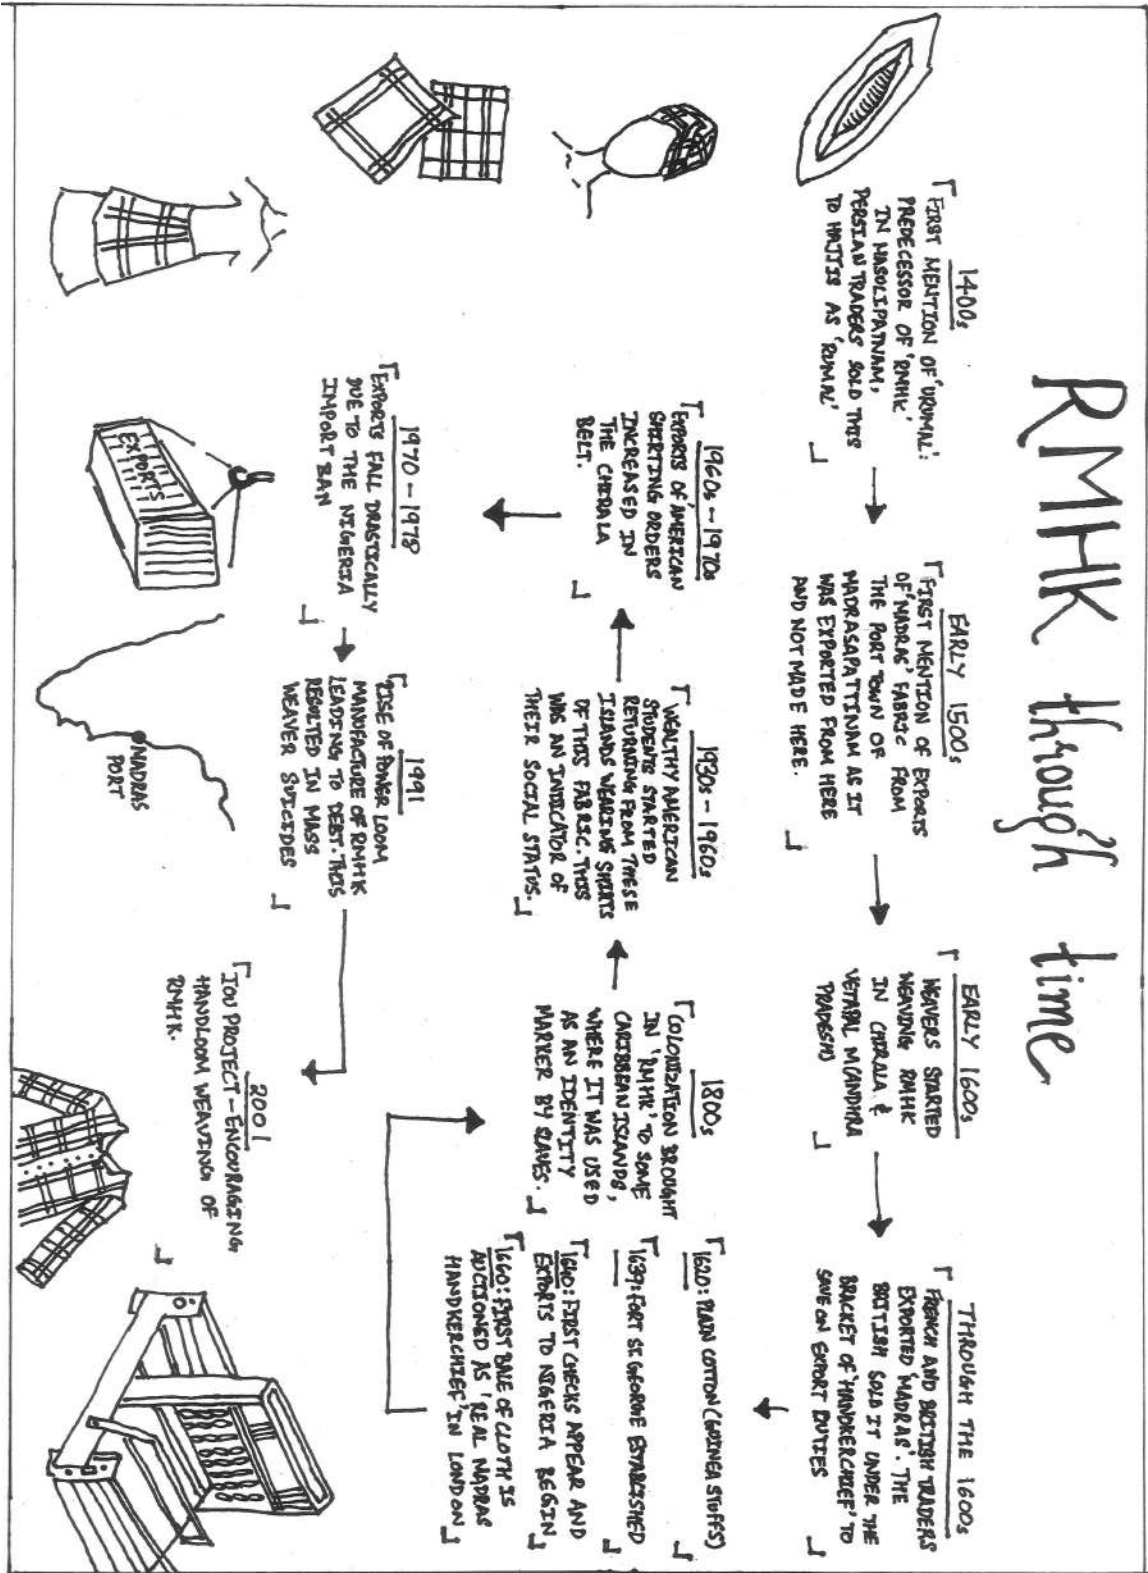 RMHK through time
1400s
FIRST MENTION OF 'URUMAL':
PREDECESSOR OF 'RMHK'
IN MASOLIPATNAM,
PERSIAN TRADERS SOLD THIS
TO HAJJIS AS 'RUMAL'
EARLY 1500s
FIRST MENTION OF EXPORTS
OF 'MADRAS' FABRIC FROM
THE PORT TOWN OF
MADRASAPATTINAM AS IT
WAS EXPORTED FROM HERE
AND NOT MADE HERE.
EARLY 1600s
WEAVERS STARTED
WEAVING RMHK
IN CHIRALA &
VETAPAL M(ANDHRA
PRADESH)
THROUGH THE 1600s
FRENCH AND BRITISH TRADERS
EXPORTED 'MADRAS'. THE
BRITISH SOLD IT UNDER THE
BRACKET OF 'HANDKERCHIEF' TO
SAVE ON EXPORT DUTIES
1620: PLAIN COTTON (GUINEA STUFFS)
1639: FORT ST. GEORGE ESTABLISHED
1640: FIRST CHECKS APPEAR AND
EXPORTS TO NIGERIA BEGIN
1660: FIRST BALE OF CLOTH IS
AUCTIONED AS 'REAL MADRAS
HANDKERCHIEF' IN LONDON
1800s
COLONIZATION BROUGHT
IN 'RMHK' TO SOME
CARIBBEAN ISLANDS,
WHERE IT WAS USED
AS AN IDENTITY
MARKER BY SLAVES.
1930s - 1960s
WEALTHY AMERICAN
STUDENTS STARTED
RETURNING FROM THESE
ISLANDS WEARING SHIRTS
OF THIS FABRIC. THIS
WAS AN INDICATOR OF
THEIR SOCIAL STATUS.
1960s - 1970s
EXPORTS OF 'AMERICAN
SHIRTING ORDERS
INCREASED IN
THE CHIRALA
BELT.
1970 - 1978
EXPORTS FALL DRASTICALLY
DUE TO THE NIGERIA
IMPORT BAN
1991
RISE OF POWER LOOM
MANUFACTURE OF RMHK
LEADING TO DEBT. THIS
RESULTED IN MASS
WEAVER SUICIDES
2001
IOU PROJECT - ENCOURAGING
HANDLOOM WEAVING OF
RMHK.
EXPORTS
MADRAS
PORT